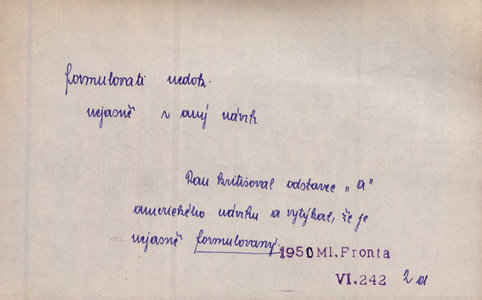 formulovati nedok.
nejasně v aný návrh
Rau kritisoval odstavec „A"
amerického návrhu a vytýkal, že je
nejasně formulovaný.
1950 Ml. Fronta
VI. 242 2a